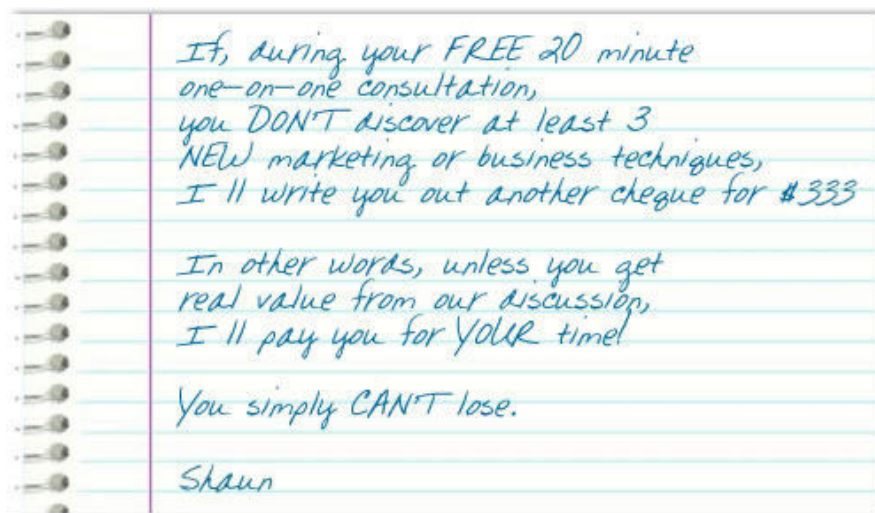 If, during your FREE 20 minute
one-on-one consultation,
you DON'T discover at least 3
NEW marketing or business techniques,
I ll write you out another cheque for $333
In other words, unless you get
real value from our discussion,
I ll pay you for YOUR time!
You simply CAN'T lose.
Shaun